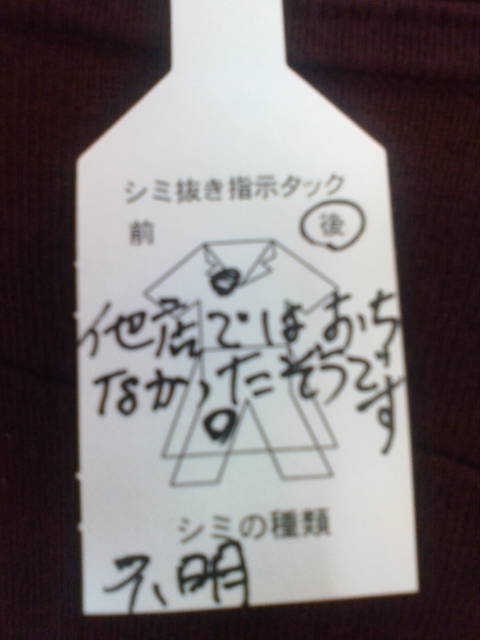 シミ抜き指示タック
前 後
他店ではおち
なかったそうです
シミの種類
不明